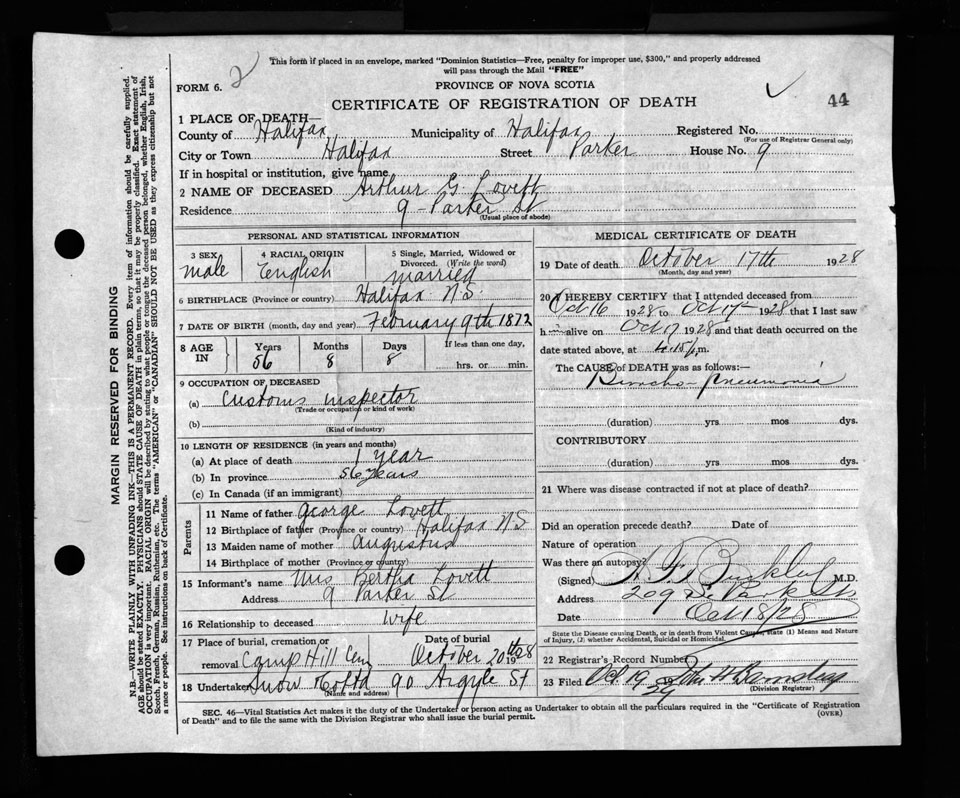 This form if placed in an envelope, marked "Dominion Statistics—Free, penalty for improper use, $300," and properly addressed
will pass through the Mail "FREE"
FORM 6. 2
PROVINCE OF NOVA SCOTIA
CERTIFICATE OF REGISTRATION OF DEATH
44
1 PLACE OF DEATH—
County of Halifax, Municipality of Halifax Registered No.
(For use of Registrar General only)
City or Town Halifax Street Parker House No. 9
If in hospital or institution, give name
2 NAME OF DECEASED Arthur G Lovett
Residence 9 - Parker St
(Usual place of abode)
PERSONAL AND STATISTICAL INFORMATION
3 SEX male
4 RACIAL ORIGIN English
5 Single, Married, Widowed or
Divorced. (Write the word)
married
6 BIRTHPLACE (Province or country) Halifax N.S.
7 DATE OF BIRTH (month, day and year) February 9th 1872
8 AGE IN
Years Months Days If less than one day,
56 8 8 hrs. or min.
9 OCCUPATION OF DECEASED
(a) Customs Inspector
(Trade or occupation or kind of work)
(b)
(Kind of industry)
10 LENGTH OF RESIDENCE (in years and months)
(a) At place of death 1 year
(b) In province 56 years
(c) In Canada (if an immigrant)
Parents
11 Name of father George Lovett
12 Birthplace of father (Province or country) Halifax NS
13 Maiden name of mother Augustus
14 Birthplace of mother (Province or country)
15 Informant's name Mrs Bertha Lovett
Address 9 Parker St
16 Relationship to deceased wife
17 Place of burial, cremation or
removal Camp Hill Cem
Date of burial
October 20th 1928
18 Undertaker Snow Co Ltd 90 Argyle St
(Name and address)
MEDICAL CERTIFICATE OF DEATH
19 Date of death October 17th 1928
(Month, day and year)
20 I HEREBY CERTIFY that I attended deceased from
Oct 16 1928 to Oct 17 1928 that I last saw
h alive on Oct 17 1928 and that death occurred on
date stated above, at 4.15 p.m.
The CAUSE of DEATH was as follows:—
Broncho-pneumonia
(duration) yrs mos dys.
CONTRIBUTORY
(duration) yrs mos dys.
21 Where was disease contracted if not at place of death?
Did an operation precede death? Date of
Nature of operation
Was there an autopsy?
(Signed) M.D.
Address 209 S. Park St
Date Oct 18/28
State the Disease causing Death, or in death from Violent Causes, state (1) Means and Nature
of Injury, (2) whether Accidental, Suicidal or Homicidal.
22 Registrar's Record Number
23 Filed Oct. 19 19
(Division Registrar)
SEC. 46—Vital Statistics Act makes it the duty of the Undertaker or person acting as Undertaker to obtain all the particulars required in the "Certificate of Registration
of Death" and to file the same with the Division Registrar who shall issue the burial permit.
(OVER)
MARGIN RESERVED FOR BINDING
N.B.—WRITE PLAINLY WITH UNFADING INK—THIS IS A PERMANENT RECORD. Every item of information should be carefully supplied.
AGE should be stated EXACTLY. PHYSICIANS should STATE CAUSE OF DEATH in plain terms, so that it may be properly classified. Exact statement of
OCCUPATION is very important. RACIAL ORIGIN will be described by stating to what people or tongue the deceased person belonged, whether English, Irish,
Scotch, French, German, Russian, Ruthenian, etc. The terms "AMERICAN" or "CANADIAN" SHOULD NOT BE USED as they express citizenship but not
a race or people. See instructions on back of Certificate.